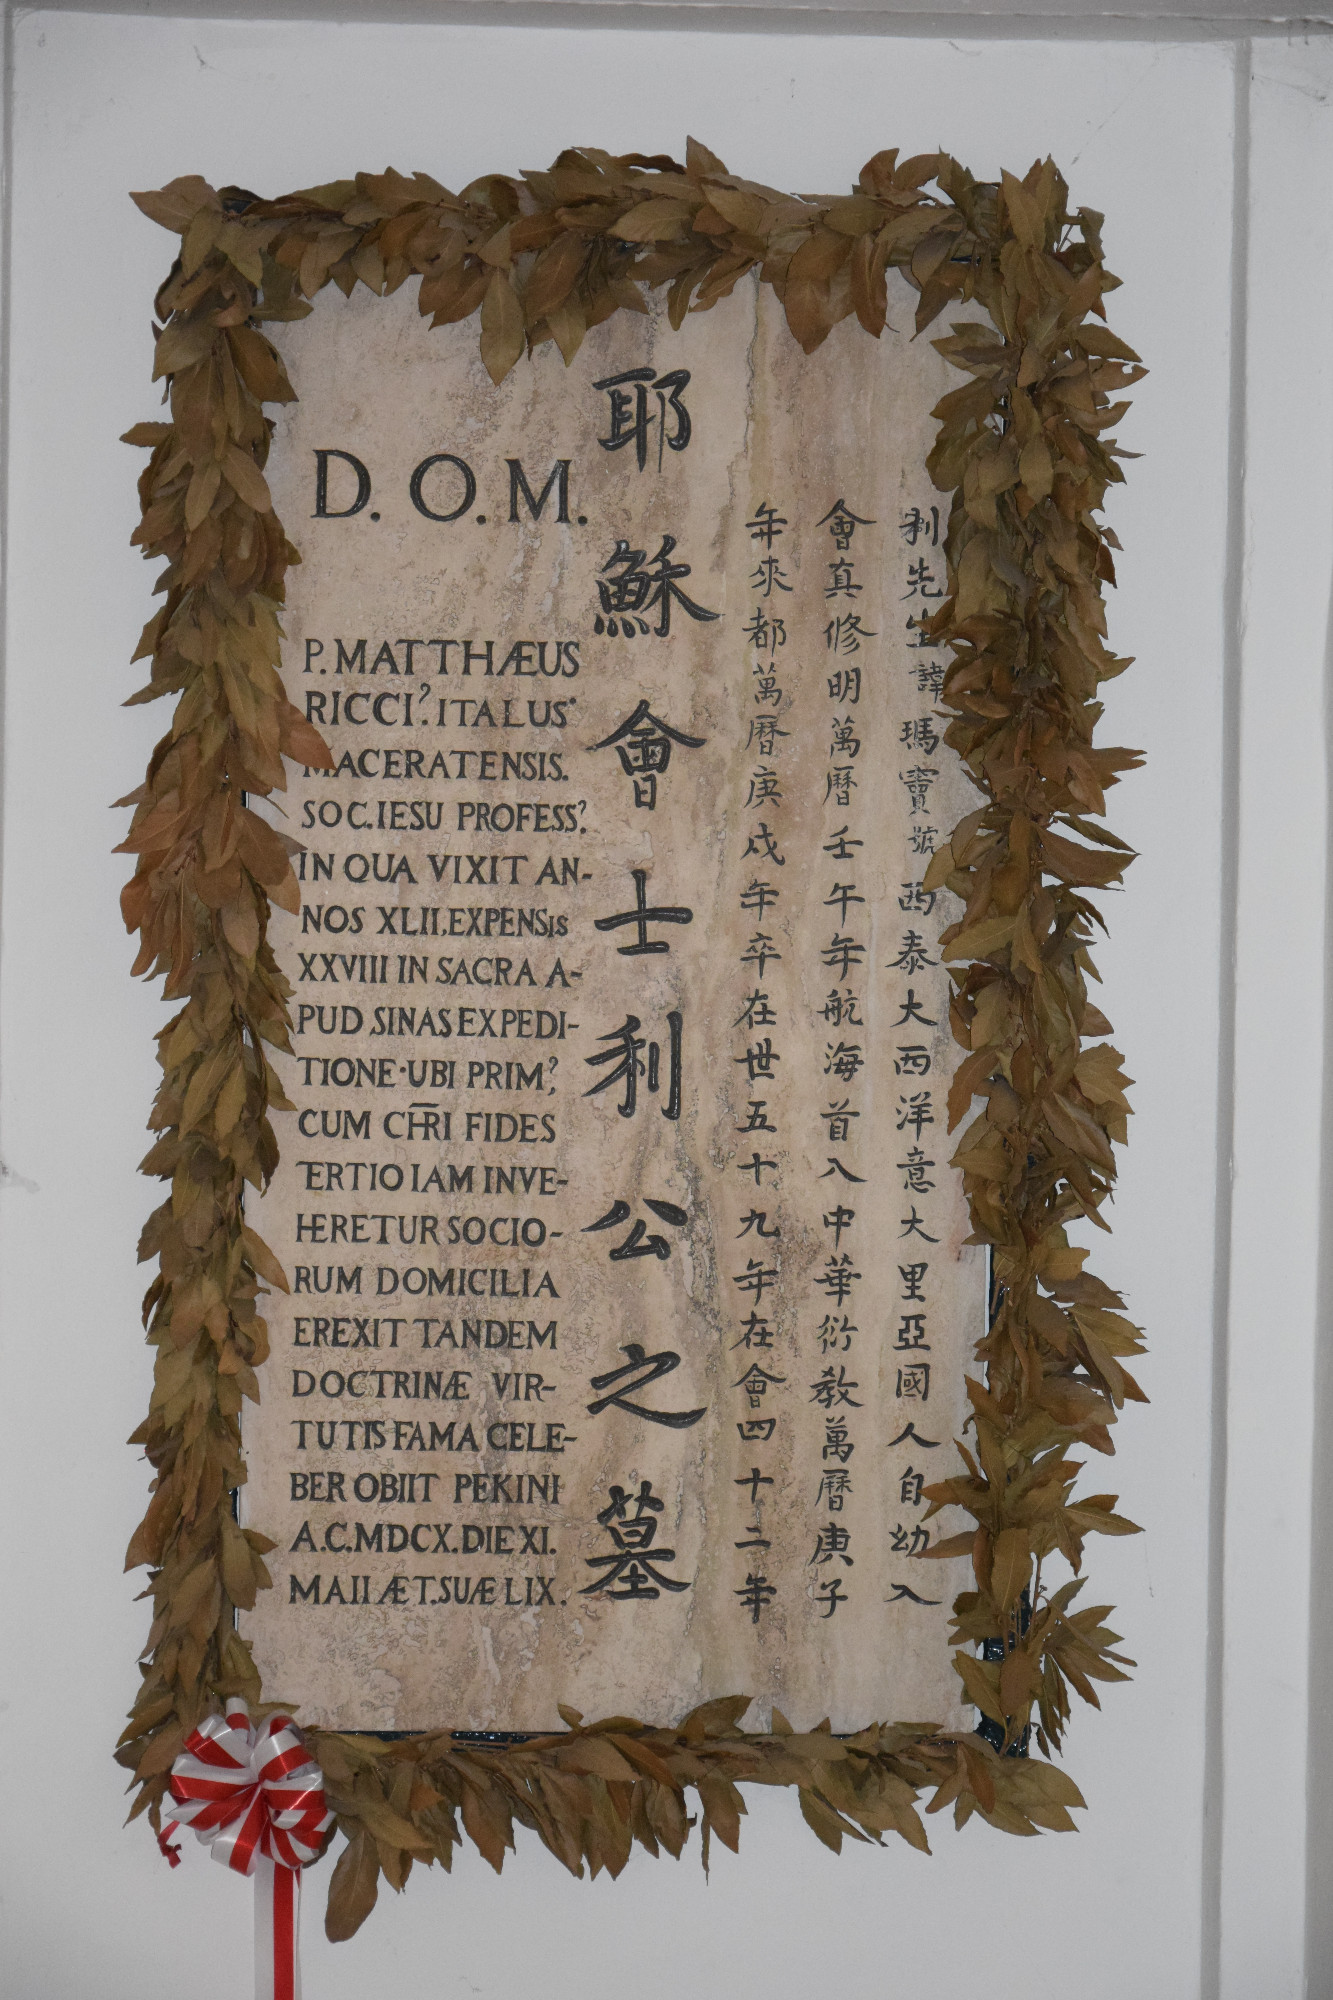 D. O. M.
P. MATTHÆUS
RICCI? ITALUS
MACERATENSIS.
SOC. IESU PROFESS?
IN QUA VIXIT AN-
NOS XLII, EXPENSIS
XXVIII IN SACRA A-
PUD SINAS EXPEDI-
TIONE·UBI PRIM?
CUM CHRI̅ FIDES
TERTIO IAM INVE-
HERETUR SOCIO-
RUM DOMICILIA
EREXIT TANDEM
DOCTRINÆ VIR-
TUTIS FAMA CELE-
BER OBIIT PEKINI
A.C.MDCX.DIE XI.
MAII ÆT.SUÆ LIX.
耶穌會士利公之墓
利先生諱瑪竇號西泰大西洋意大里亞國人自幼入
會真修明萬曆壬午年航海首入中華衍教萬曆庚子
年來都萬曆庚戌年卒在世五十九年在會四十二年